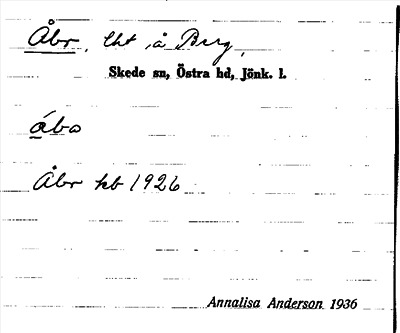 Åbr, lht å Berg,
Skede sn, Östra hd, Jönk. l.
ábo
Åbr kb 1926
Annalisa Anderson 1936